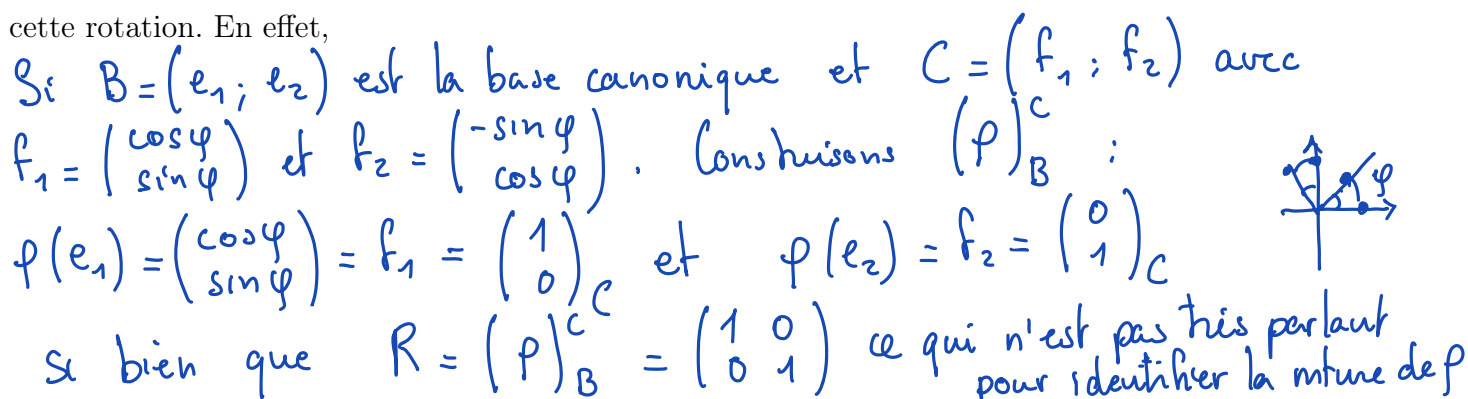 cette rotation. En effet,
Si B = (e₁; e₂) est la base canonique et C = (f₁; f₂) avec
f₁ = (cosφ sinφ) et f₂ = (-sinφ cosφ). Construisons (ρ)_B^C :
φ
ρ(e₁) = (cosφ sinφ) = f₁ = (1 0)_C et ρ(e₂) = f₂ = (0 1)_C
si bien que R = (ρ)_B^C = (1 0 0 1) ce qui n'est pas très parlant
pour identifier la nature de ρ